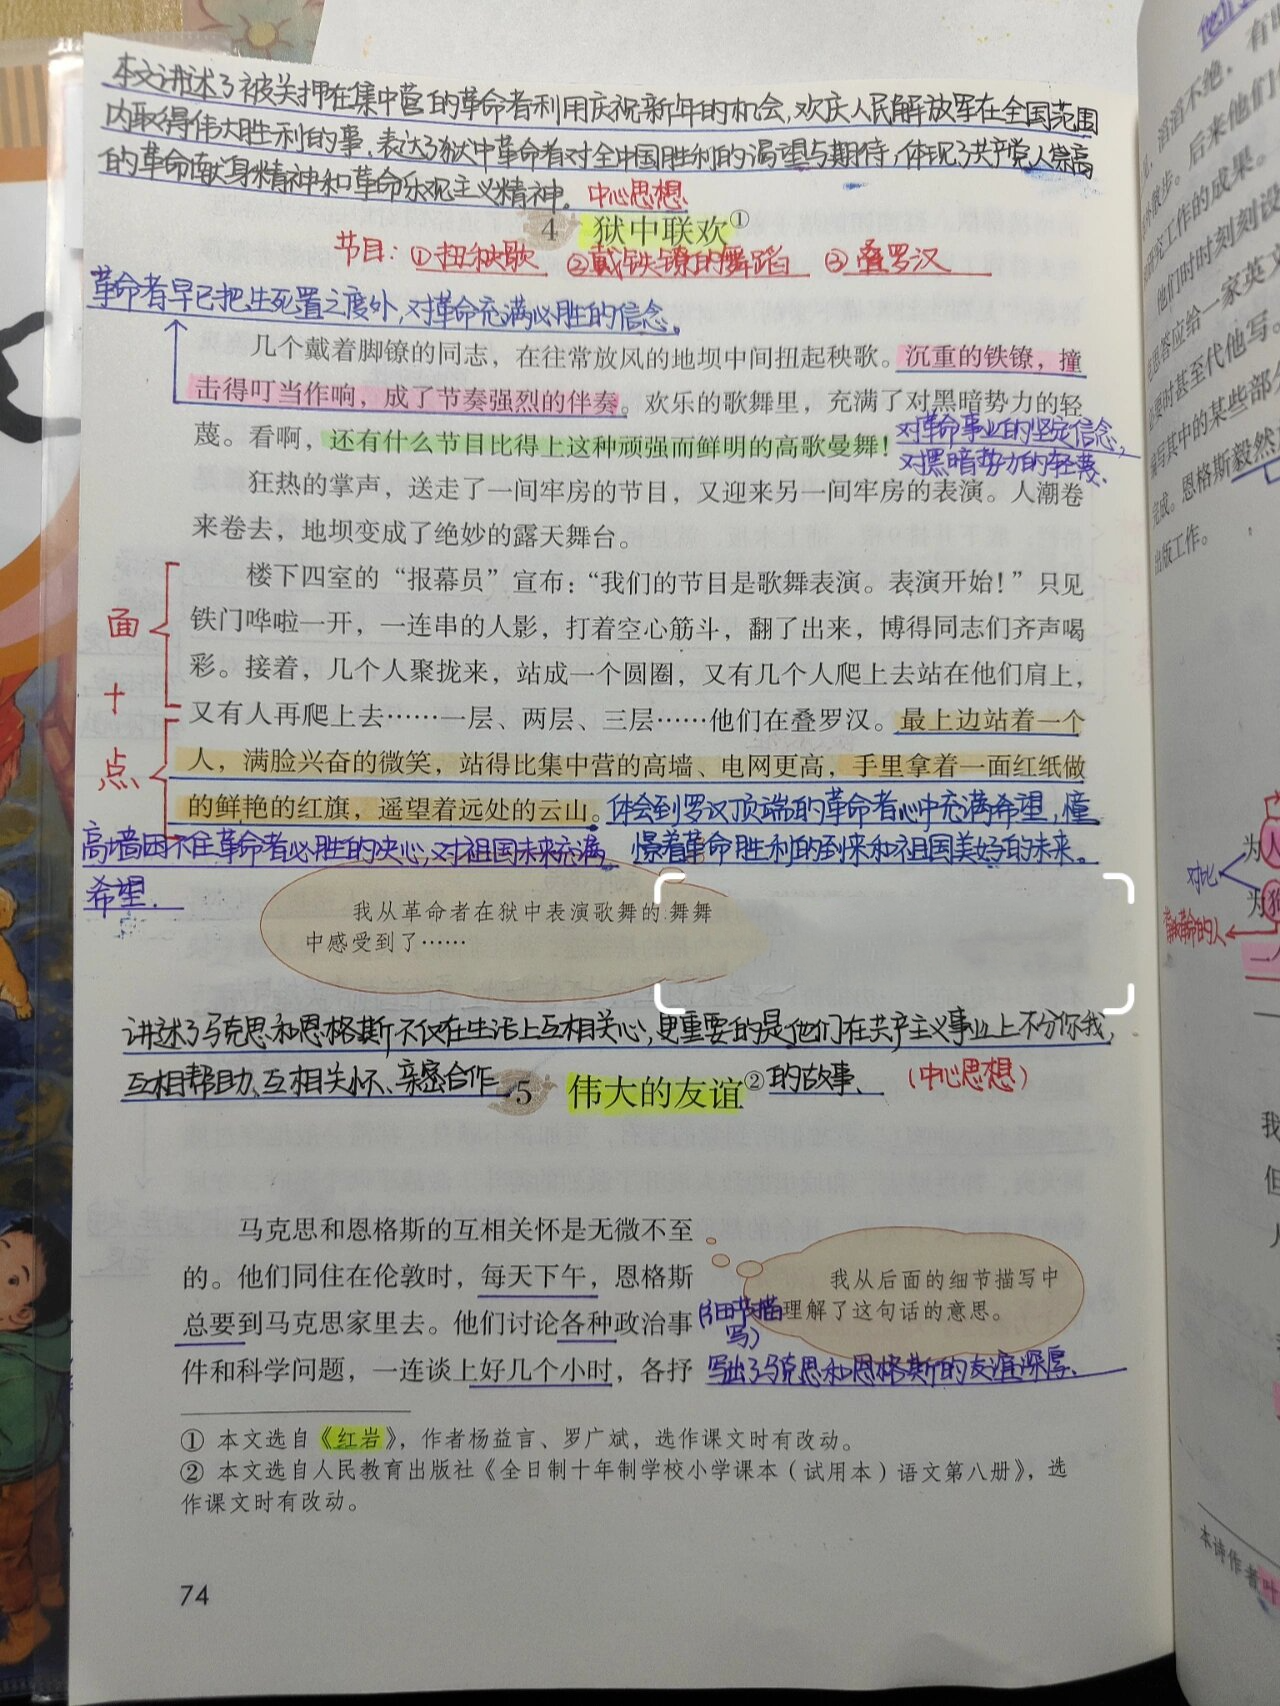 本文讲述了被关押在集中营的革命者利用庆祝新年的机会,欢庆人民解放军在全国范围
内取得伟大胜利的事,表达了狱中革命者对全中国胜利的渴望与期待,体现了共产党人崇高
的革命献身精神和革命乐观主义精神。 中心思想
4 狱中联欢①
节目: ①扭秧歌 ②戴铁镣的舞蹈 ③叠罗汉
革命者早已把生死置之度外,对革命充满必胜的信念。
几个戴着脚镣的同志，在往常放风的地坝中间扭起秧歌。沉重的铁镣，撞
击得叮当作响，成了节奏强烈的伴奏。欢乐的歌舞里，充满了对黑暗势力的轻
蔑。看啊，还有什么节目比得上这种顽强而鲜明的高歌曼舞！
对革命事业的坚定信念,
对黑暗势力的轻蔑.
狂热的掌声，送走了一间牢房的节目，又迎来另一间牢房的表演。人潮卷
来卷去，地坝变成了绝妙的露天舞台。
楼下四室的“报幕员”宣布：“我们的节目是歌舞表演。表演开始！”只见
铁门哗啦一开，一连串的人影，打着空心筋斗，翻了出来，博得同志们齐声喝
彩。接着，几个人聚拢来，站成一个圆圈，又有几个人爬上去站在他们肩上，
又有人再爬上去……一层、两层、三层……他们在叠罗汉。最上边站着一个
人，满脸兴奋的微笑，站得比集中营的高墙、电网更高，手里拿着一面红纸做
的鲜艳的红旗，遥望着远处的云山。
面
+
点
体会到罗汉顶端的革命者心中充满希望,憧
憬着革命胜利的到来和祖国美好的未来。
高墙困不住革命者必胜的决心,对祖国未来充满
希望.
我从革命者在狱中表演歌舞的舞舞
中感受到了……
讲述了马克思和恩格斯不仅在生活上互相关心,更重要的是他们在共产主义事业上不分你我,
互相帮助、互相关怀、亲密合作
5 伟大的友谊② 的故事、 (中心思想)
马克思和恩格斯的互相关怀是无微不至
的。他们同住在伦敦时，每天下午，恩格斯
总要到马克思家里去。他们讨论各种政治事
件和科学问题，一连谈上好几个小时，各抒
我从后面的细节描写中
理解了这句话的意思。
(细节描
写)
写出了马克思和恩格斯的友谊深厚.
① 本文选自《红岩》，作者杨益言、罗广斌，选作课文时有改动。
② 本文选自人民教育出版社《全日制十年制学校小学课本（试用本）语文第八册》，选
作课文时有改动。
74
滔滔不绝，有时
散步。后来他们
研究工作的成果。
他们时时刻刻设
思答应给一家英文
必要时甚至代他写
编写其中的某些部分
完成。恩格斯毅然
出版工作。
对比
为人
为
革命的人
我
但
本诗作者叶